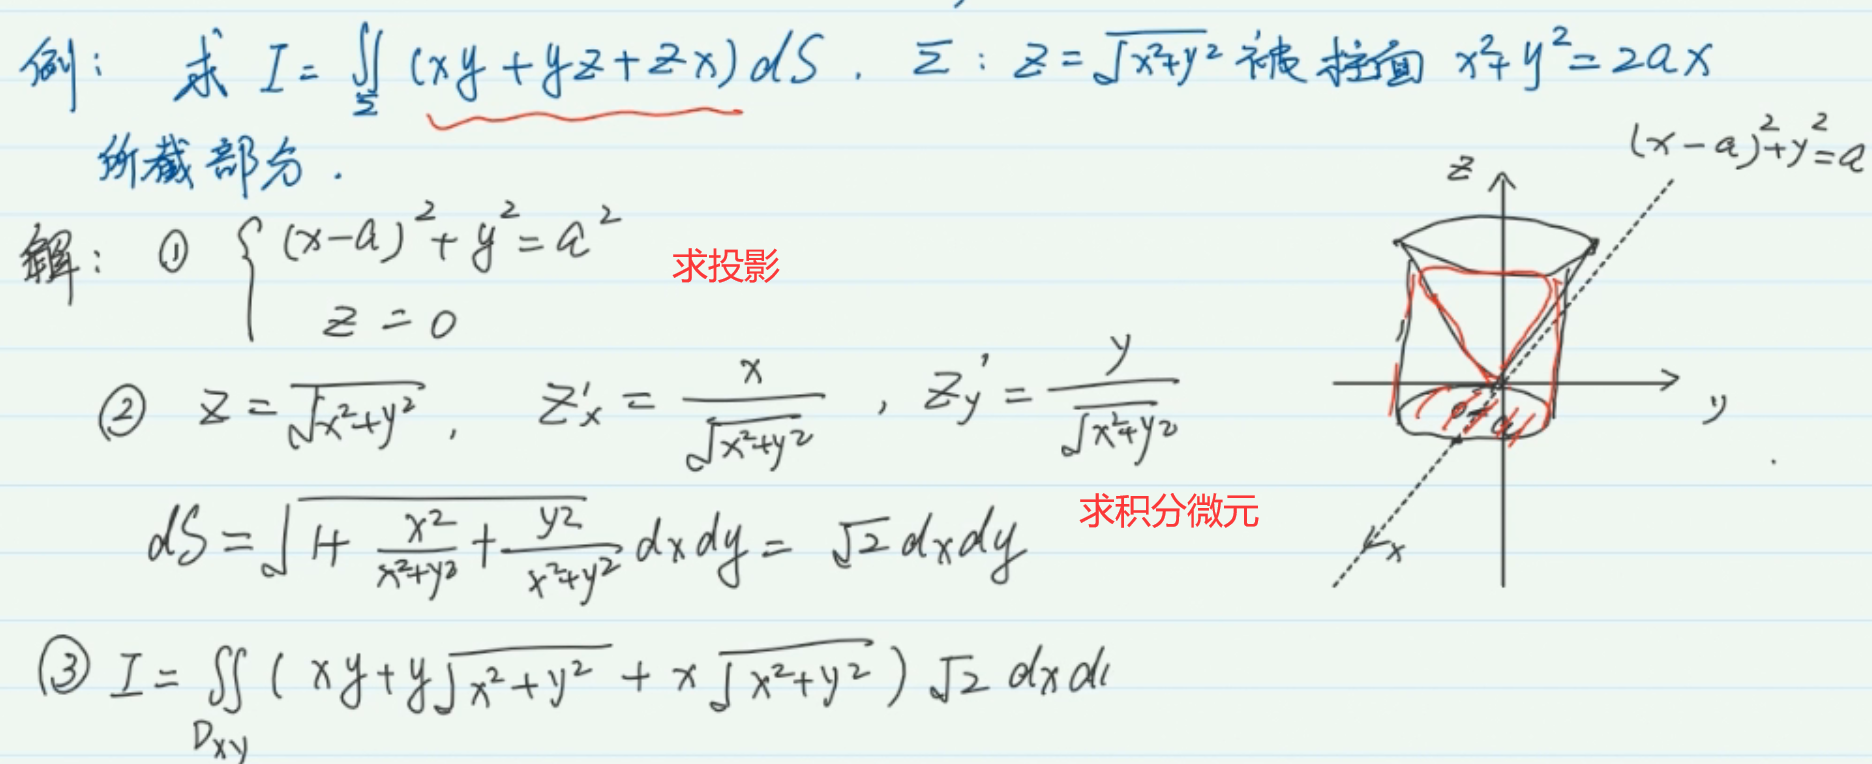 例: 求 I = ∬_Σ (xy + yz + zx) dS . Σ : z = √(x²+y²) 被柱面 x²+y² = 2ax
所截部分.
(x-a)²+y²=a
z
解: ① { (x-a)² + y² = a²
z = 0
求投影
② z = √(x²+y²) , z'x = x/√(x²+y²) , zy' = y/√(x²+y²)
y
求积分微元
dS = √(1+ x²/(x²+y²) + y²/(x²+y²)) dxdy = √2 dxdy
x
③ I = ∬_Dxy ( xy + y√(x²+y²) + x√(x²+y²) ) √2 dxd